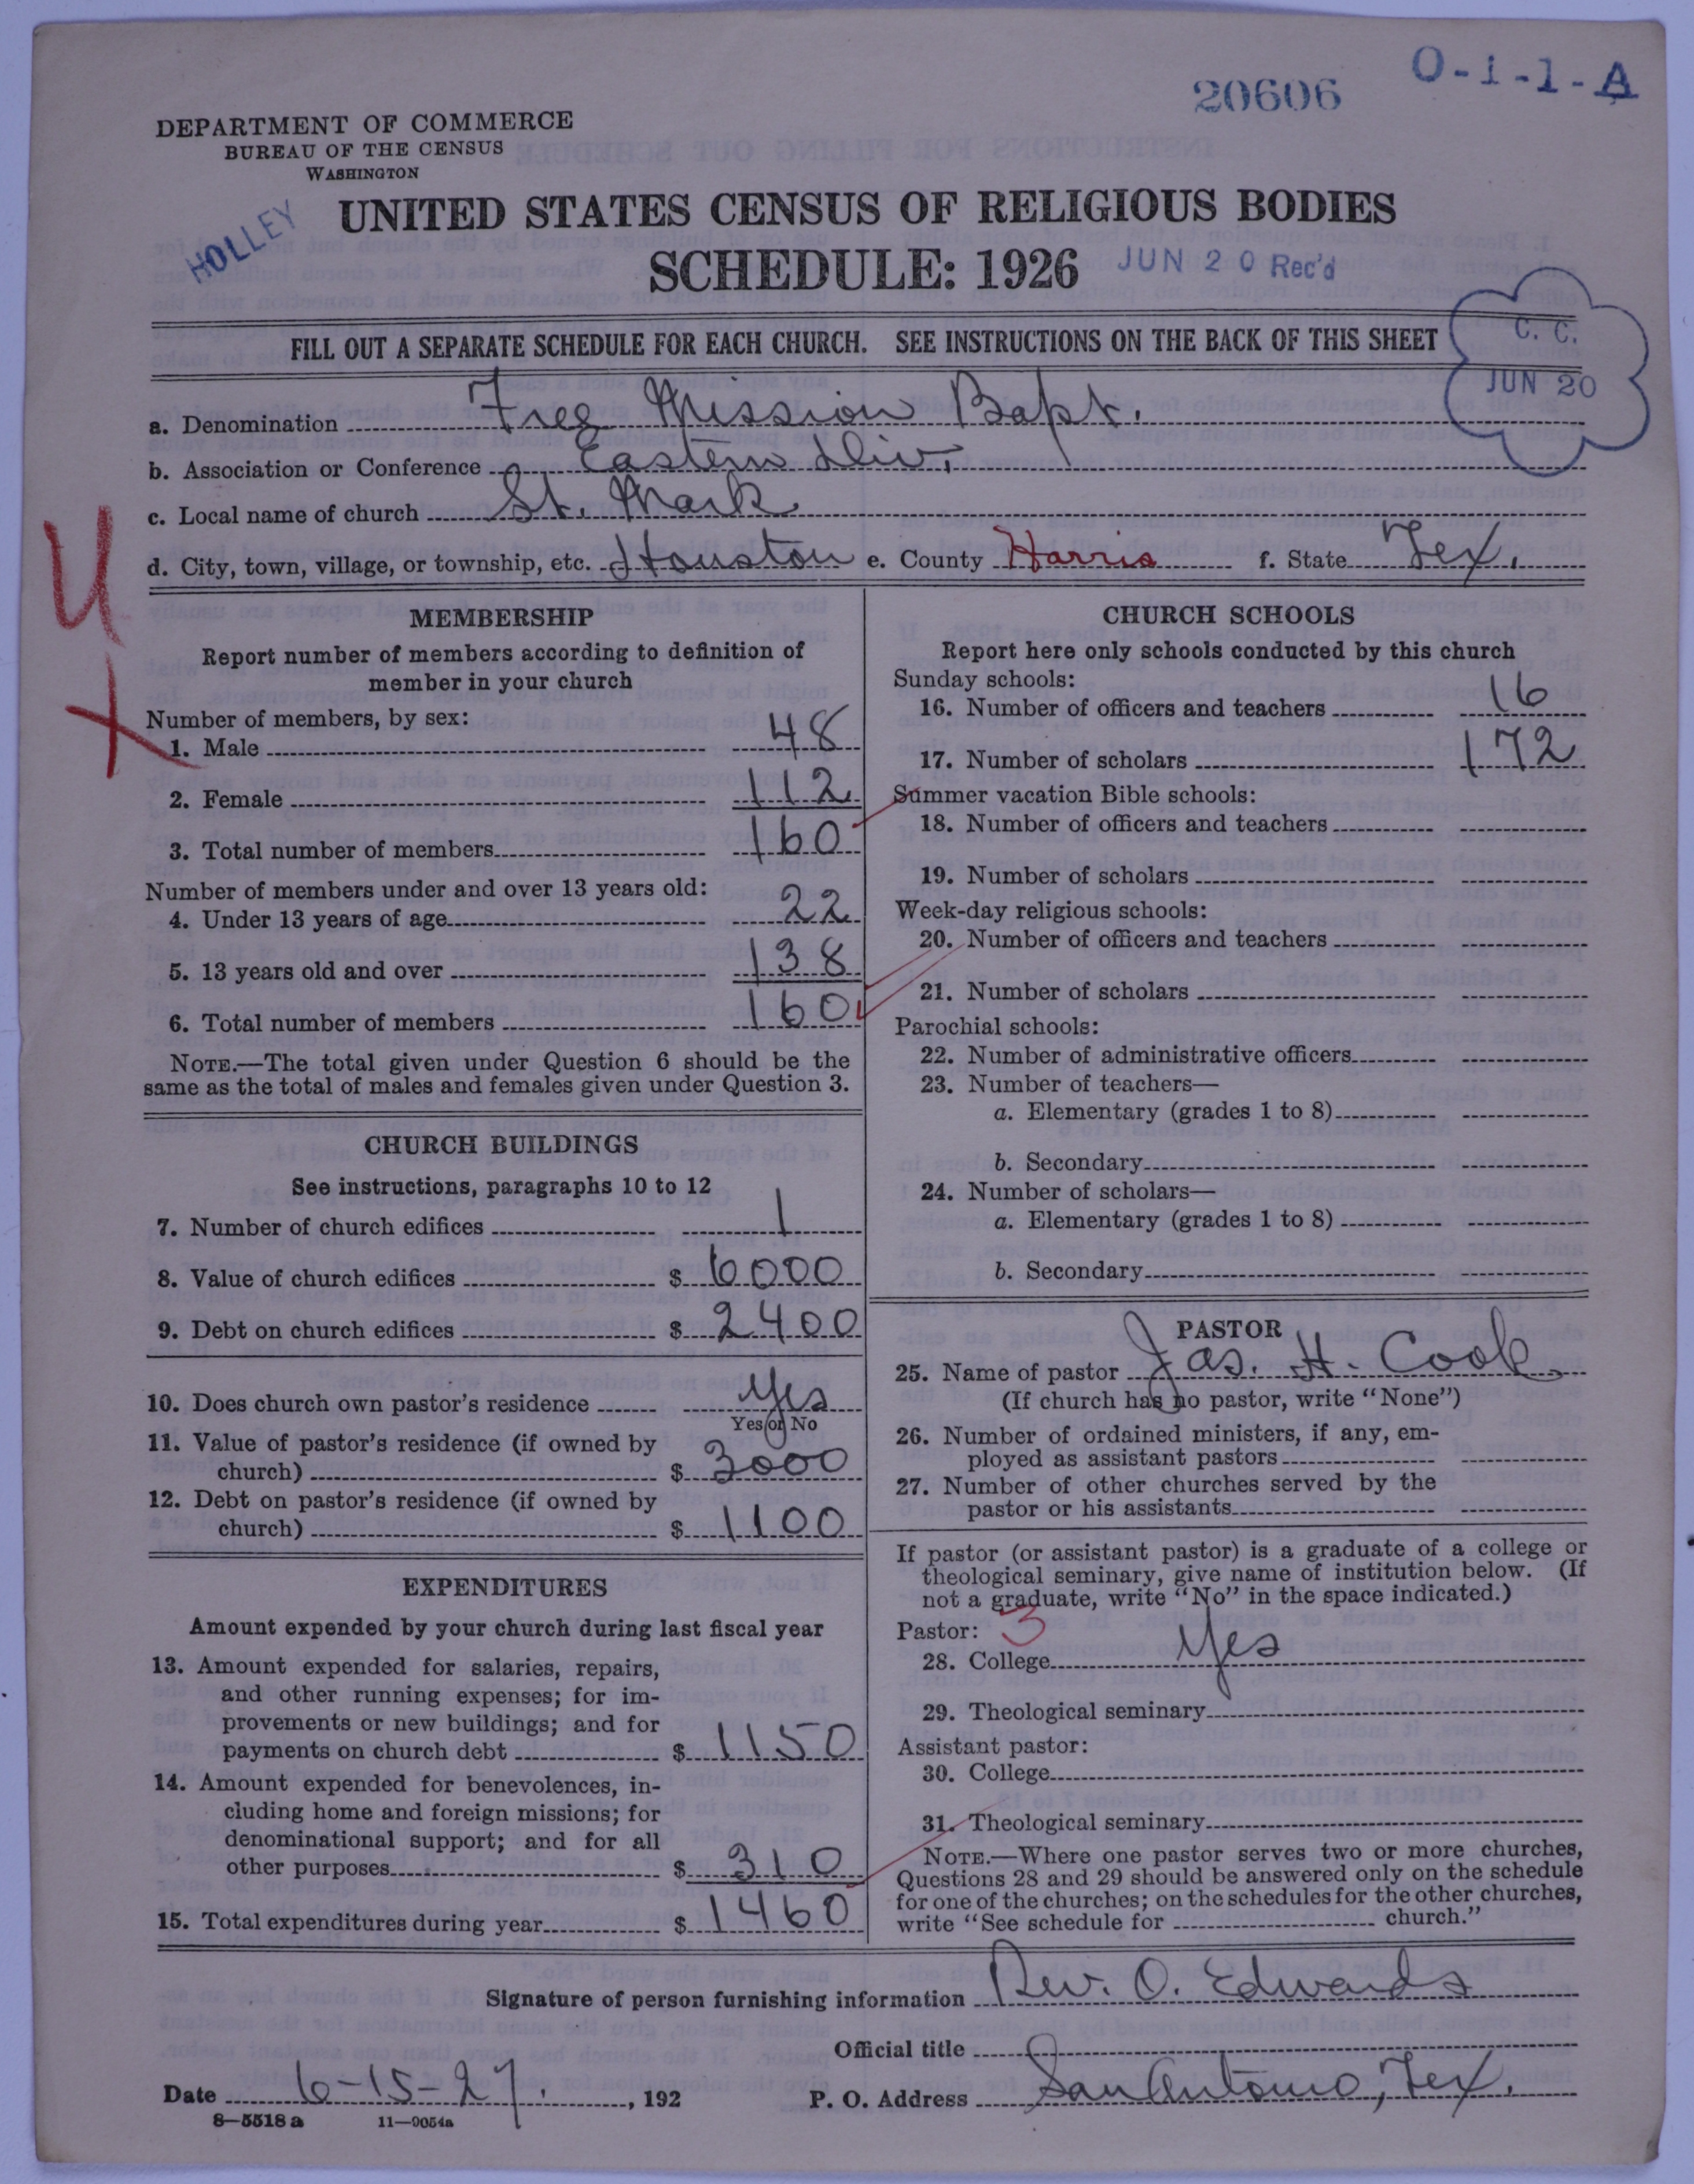 20606
O-1-1-A
DEPARTMENT OF COMMERCE
BUREAU OF THE CENSUS
WASHINGTON
HOLLEY
UNITED STATES CENSUS OF RELIGIOUS BODIES
SCHEDULE: 1926
JUN 20 Rec'd
FILL OUT A SEPARATE SCHEDULE FOR EACH CHURCH. SEE INSTRUCTIONS ON THE BACK OF THIS SHEET
C. C.
JUN 20
a. Denomination Free Mission Bapt.
b. Association or Conference Eastern Div.
c. Local name of church St. Mark
d. City, town, village, or township, etc. Houston e. County Harris f. State Tex.
MEMBERSHIP
Report number of members according to definition of
member in your church
Number of members, by sex:
1. Male 48
2. Female 112
3. Total number of members 160
Number of members under and over 13 years old:
4. Under 13 years of age 22
5. 13 years old and over 138
6. Total number of members 160
NOTE.—The total given under Question 6 should be the
same as the total of males and females given under Question 3.
CHURCH BUILDINGS
See instructions, paragraphs 10 to 12
7. Number of church edifices 1
8. Value of church edifices $ 6000
9. Debt on church edifices $ 2400
10. Does church own pastor's residence Yes
Yes or No
11. Value of pastor's residence (if owned by
church) $ 3000
12. Debt on pastor's residence (if owned by
church) $ 1100
EXPENDITURES
Amount expended by your church during last fiscal year
13. Amount expended for salaries, repairs,
and other running expenses; for im-
provements or new buildings; and for
payments on church debt $ 1150
14. Amount expended for benevolences, in-
cluding home and foreign missions; for
denominational support; and for all
other purposes $ 310
15. Total expenditures during year $ 1460
CHURCH SCHOOLS
Report here only schools conducted by this church
Sunday schools:
16. Number of officers and teachers 16
17. Number of scholars 172
Summer vacation Bible schools:
18. Number of officers and teachers
19. Number of scholars
Week-day religious schools:
20. Number of officers and teachers
21. Number of scholars
Parochial schools:
22. Number of administrative officers
23. Number of teachers—
a. Elementary (grades 1 to 8)
b. Secondary
24. Number of scholars—
a. Elementary (grades 1 to 8)
b. Secondary
PASTOR
25. Name of pastor Jas. H. Cook
(If church has no pastor, write "None")
26. Number of ordained ministers, if any, em-
ployed as assistant pastors
27. Number of other churches served by the
pastor or his assistants
If pastor (or assistant pastor) is a graduate of a college or
theological seminary, give name of institution below. (If
not a graduate, write "No" in the space indicated.)
Pastor: 3
28. College Yes
29. Theological seminary
Assistant pastor:
30. College
31. Theological seminary
NOTE.—Where one pastor serves two or more churches,
Questions 28 and 29 should be answered only on the schedule
for one of the churches; on the schedules for the other churches,
write "See schedule for church."
Signature of person furnishing information Rev. O. Edwards
Official title
Date 6-15-27., 192 P. O. Address San Antonio, Tex.
8—5518 a 11—9054a